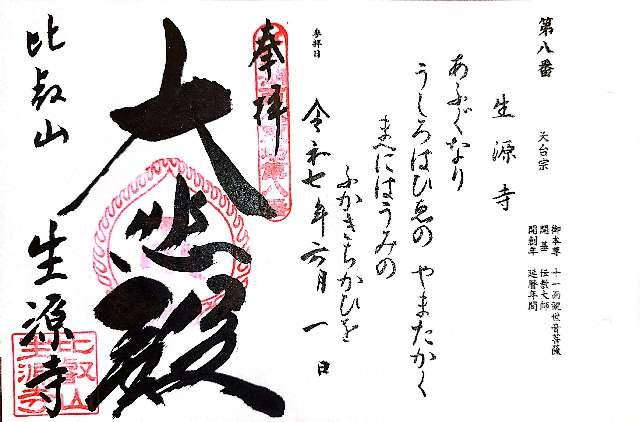 第八番
生源寺
天台宗
御本尊 十一面観世音菩薩
開基 伝教大師
開創年 延暦年間
あふぐなり
うしろはひゑの やまたかく
まへにはうみの
ふかきちかひを
参拝日
令和七年六月一日
奉拝
大悲殿
比叡山 生源寺
比叡山
生源寺